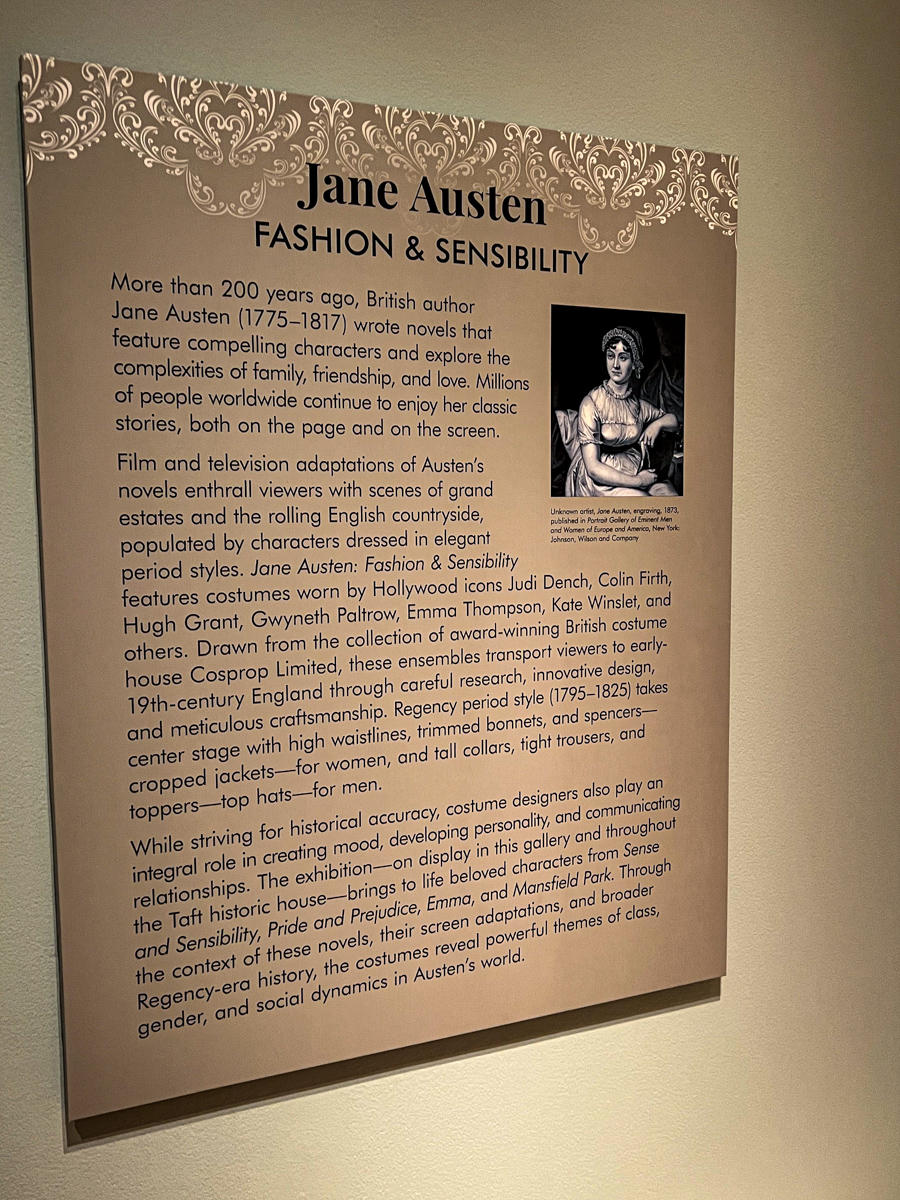 Jane Austen
FASHION & SENSIBILITY
More than 200 years ago, British author
Jane Austen (1775–1817) wrote novels that
feature compelling characters and explore the
complexities of family, friendship, and love. Millions
of people worldwide continue to enjoy her classic
stories, both on the page and on the screen.
Film and television adaptations of Austen's
novels enthrall viewers with scenes of grand
estates and the rolling English countryside,
populated by characters dressed in elegant
period styles. Jane Austen: Fashion & Sensibility
features costumes worn by Hollywood icons Judi Dench, Colin Firth,
Hugh Grant, Gwyneth Paltrow, Emma Thompson, Kate Winslet, and
others. Drawn from the collection of award-winning British costume
house Cosprop Limited, these ensembles transport viewers to early-
19th-century England through careful research, innovative design,
and meticulous craftsmanship. Regency period style (1795–1825) takes
center stage with high waistlines, trimmed bonnets, and spencers—
cropped jackets—for women, and tall collars, tight trousers, and
toppers—top hats—for men.
While striving for historical accuracy, costume designers also play an
integral role in creating mood, developing personality, and communicating
relationships. The exhibition—on display in this gallery and throughout
the Taft historic house—brings to life beloved characters from Sense
and Sensibility, Pride and Prejudice, Emma, and Mansfield Park. Through
the context of these novels, their screen adaptations, and broader
Regency-era history, the costumes reveal powerful themes of class,
gender, and social dynamics in Austen's world.
Unknown artist, Jane Austen, engraving, 1873,
published in Portrait Gallery of Eminent Men
and Women of Europe and America, New York:
Johnson, Wilson and Company